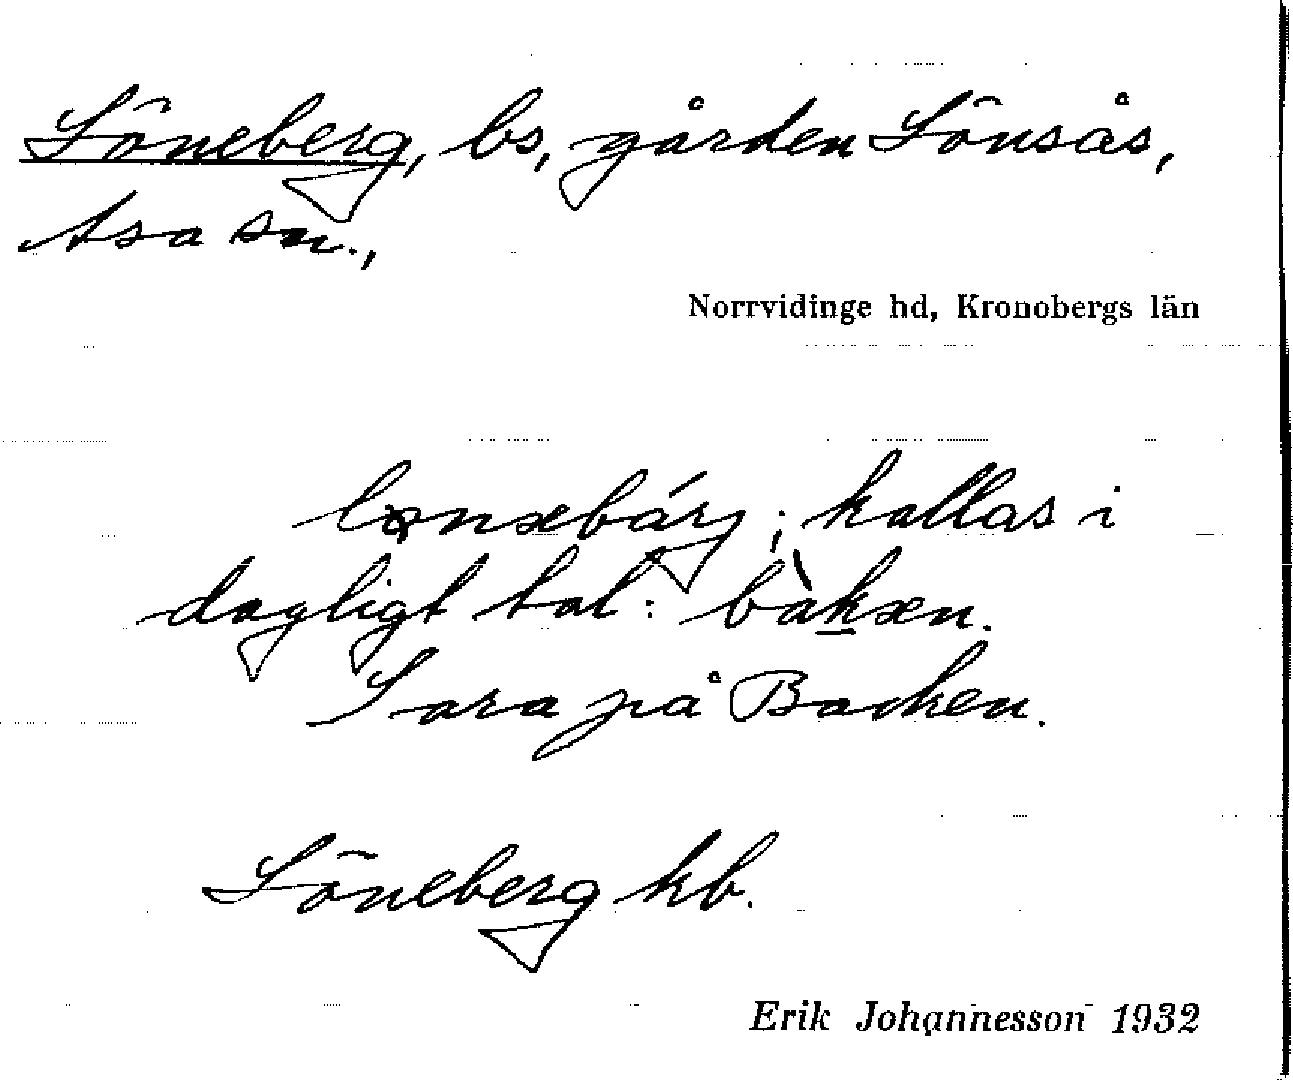 Löneberg, bs, gården Lönsås,
Asa sn.,
Norrvidinge hd, Kronobergs län
kallas i
dagligt tal: bàkæn.
Sara på Backen.
Löneberg kb.
Erik Johannesson 1932